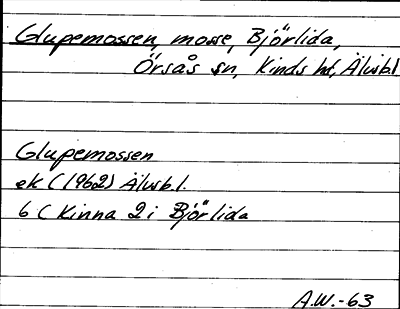 Glupemossen, mosse, Björlida,
Örsås sn, Kinds hd, Älvsb.l
Glupemossen
ek (1962) Älvsb.l.
6 C Kinna 2 i Björlida
A.W.-63